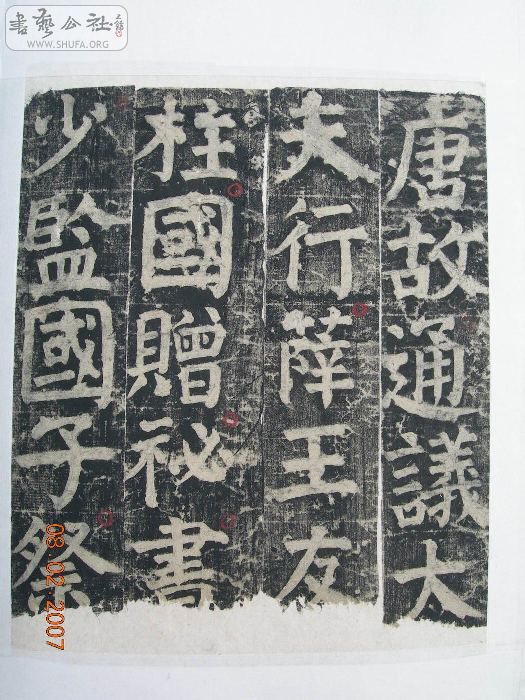 書藝公社
WWW.SHUFA.ORG
唐故通議大
夫行薛王友
柱國贈祕書
少監國子祭
08 02 2007